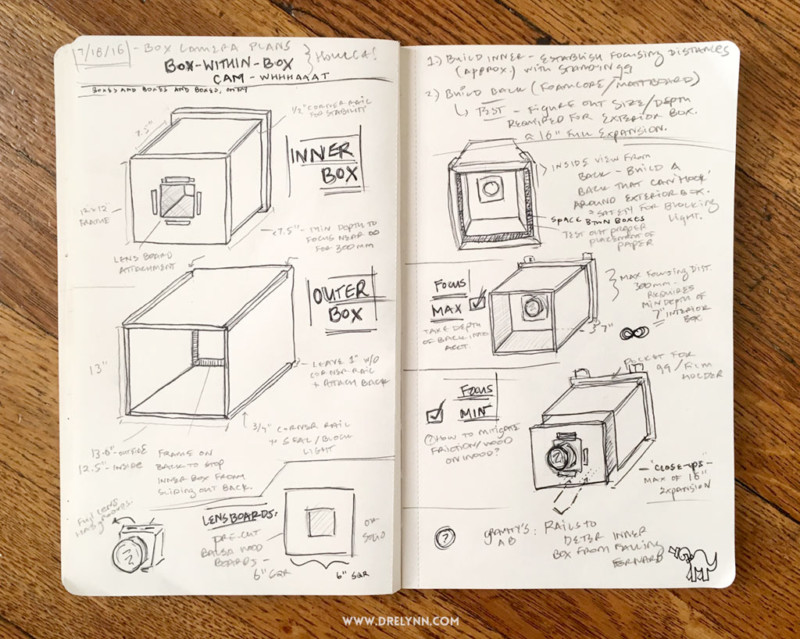 7/18/16 - BOX CAMERA PLANS
BOX-WITHIN-BOX
CAM - WHHHAAAT
HOLLLA!
BOXES AND BOXES AND BOXES,
1/2" CORNER RAIL
FOR STABILITY
INNER
BOX
12x12"
FRAME
LENS BOARD
ATTACHMENT
7.5" - MIN DEPTH TO
FOCUS NEAR ∞
FOR 300MM
OUTER
BOX
13"
LEAVE 1" W/O
CORNER RAIL
ATTACH BACK
3/4" CORNER RAIL
TO SEAL/BLOCK
LIGHT
13.0" - OUTSIDE
12.5" - INSIDE
FRAME ON
BACK TO STOP
INNER BOX FROM
SLIDING OUT BACK.
LENSBOARDS:
PRE-CUT
BALSA WOOD
BOARDS -
6" SQR
6" SQR
1.) BUILD INNER - ESTABLISH FOCUSING DISTANCES
(APPROX) WITH STANDING
2.) BUILD BACK (FOAMCORE/MATTBOARD)
↳ TEST - FIGURE OUT SIZE/DEPTH
REQUIRED FOR EXTERIOR BOX.
@ 16" FULL EXPANSION.
INSIDE VIEW FROM
BACK - BUILD A
BACK THAT CAN "HOOK"
AROUND EXTERIOR BOX.
SAFETY FOR BLOCKING
LIGHT.
SPACE BTWN BOXES
TEST OUT PROPER
PLACEMENT OF
PAPER
FOCUS
MAX
TAKE DEPTH
OF BACK INTO
ACCT.
MAX FOCUSING DIST.
300MM -
REQUIRES
MIN DEPTH OF
7" INTERIOR
BOX.
7"
∞
POCKET FOR
GG/FILM
HOLDER
FOCUS
MIN
? HOW TO MITIGATE
FRICTION/WOOD
ON WOOD?
"CLOSE-UPS"
MAX OF 16"
EXPANSION
?
RAILS TO
DETER INNER
BOX FROM FALLING
FORWARD
WWW.DRELYNN.COM